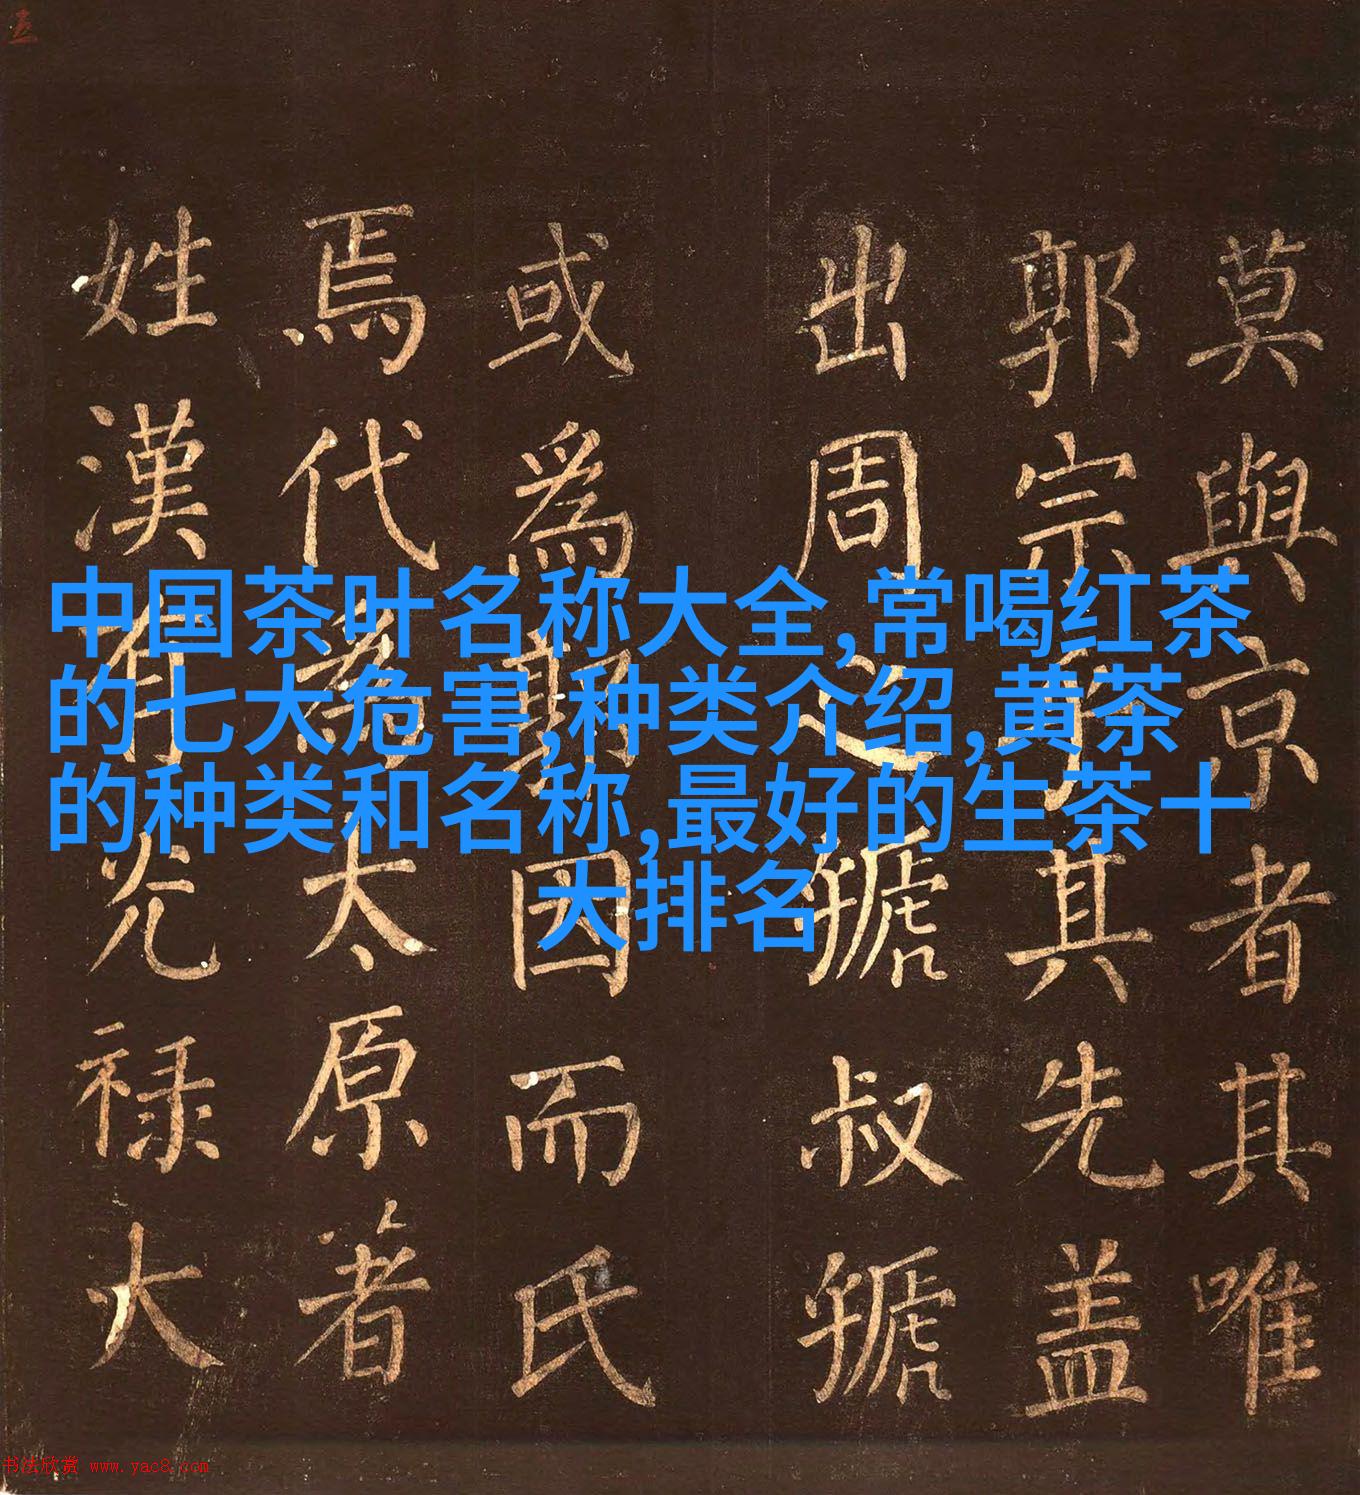 莫與京者其唯
郭宗乎其先盖
出周之虢叔虢
或爲郭因而氏
焉代爲太原著
姓漢有光禄大
中国茶叶名称大全,常喝红茶
的七大危害,种类介绍,黄茶
的种类和名称,最好的生茶十
大排名
书法欣赏 www.yac8.com